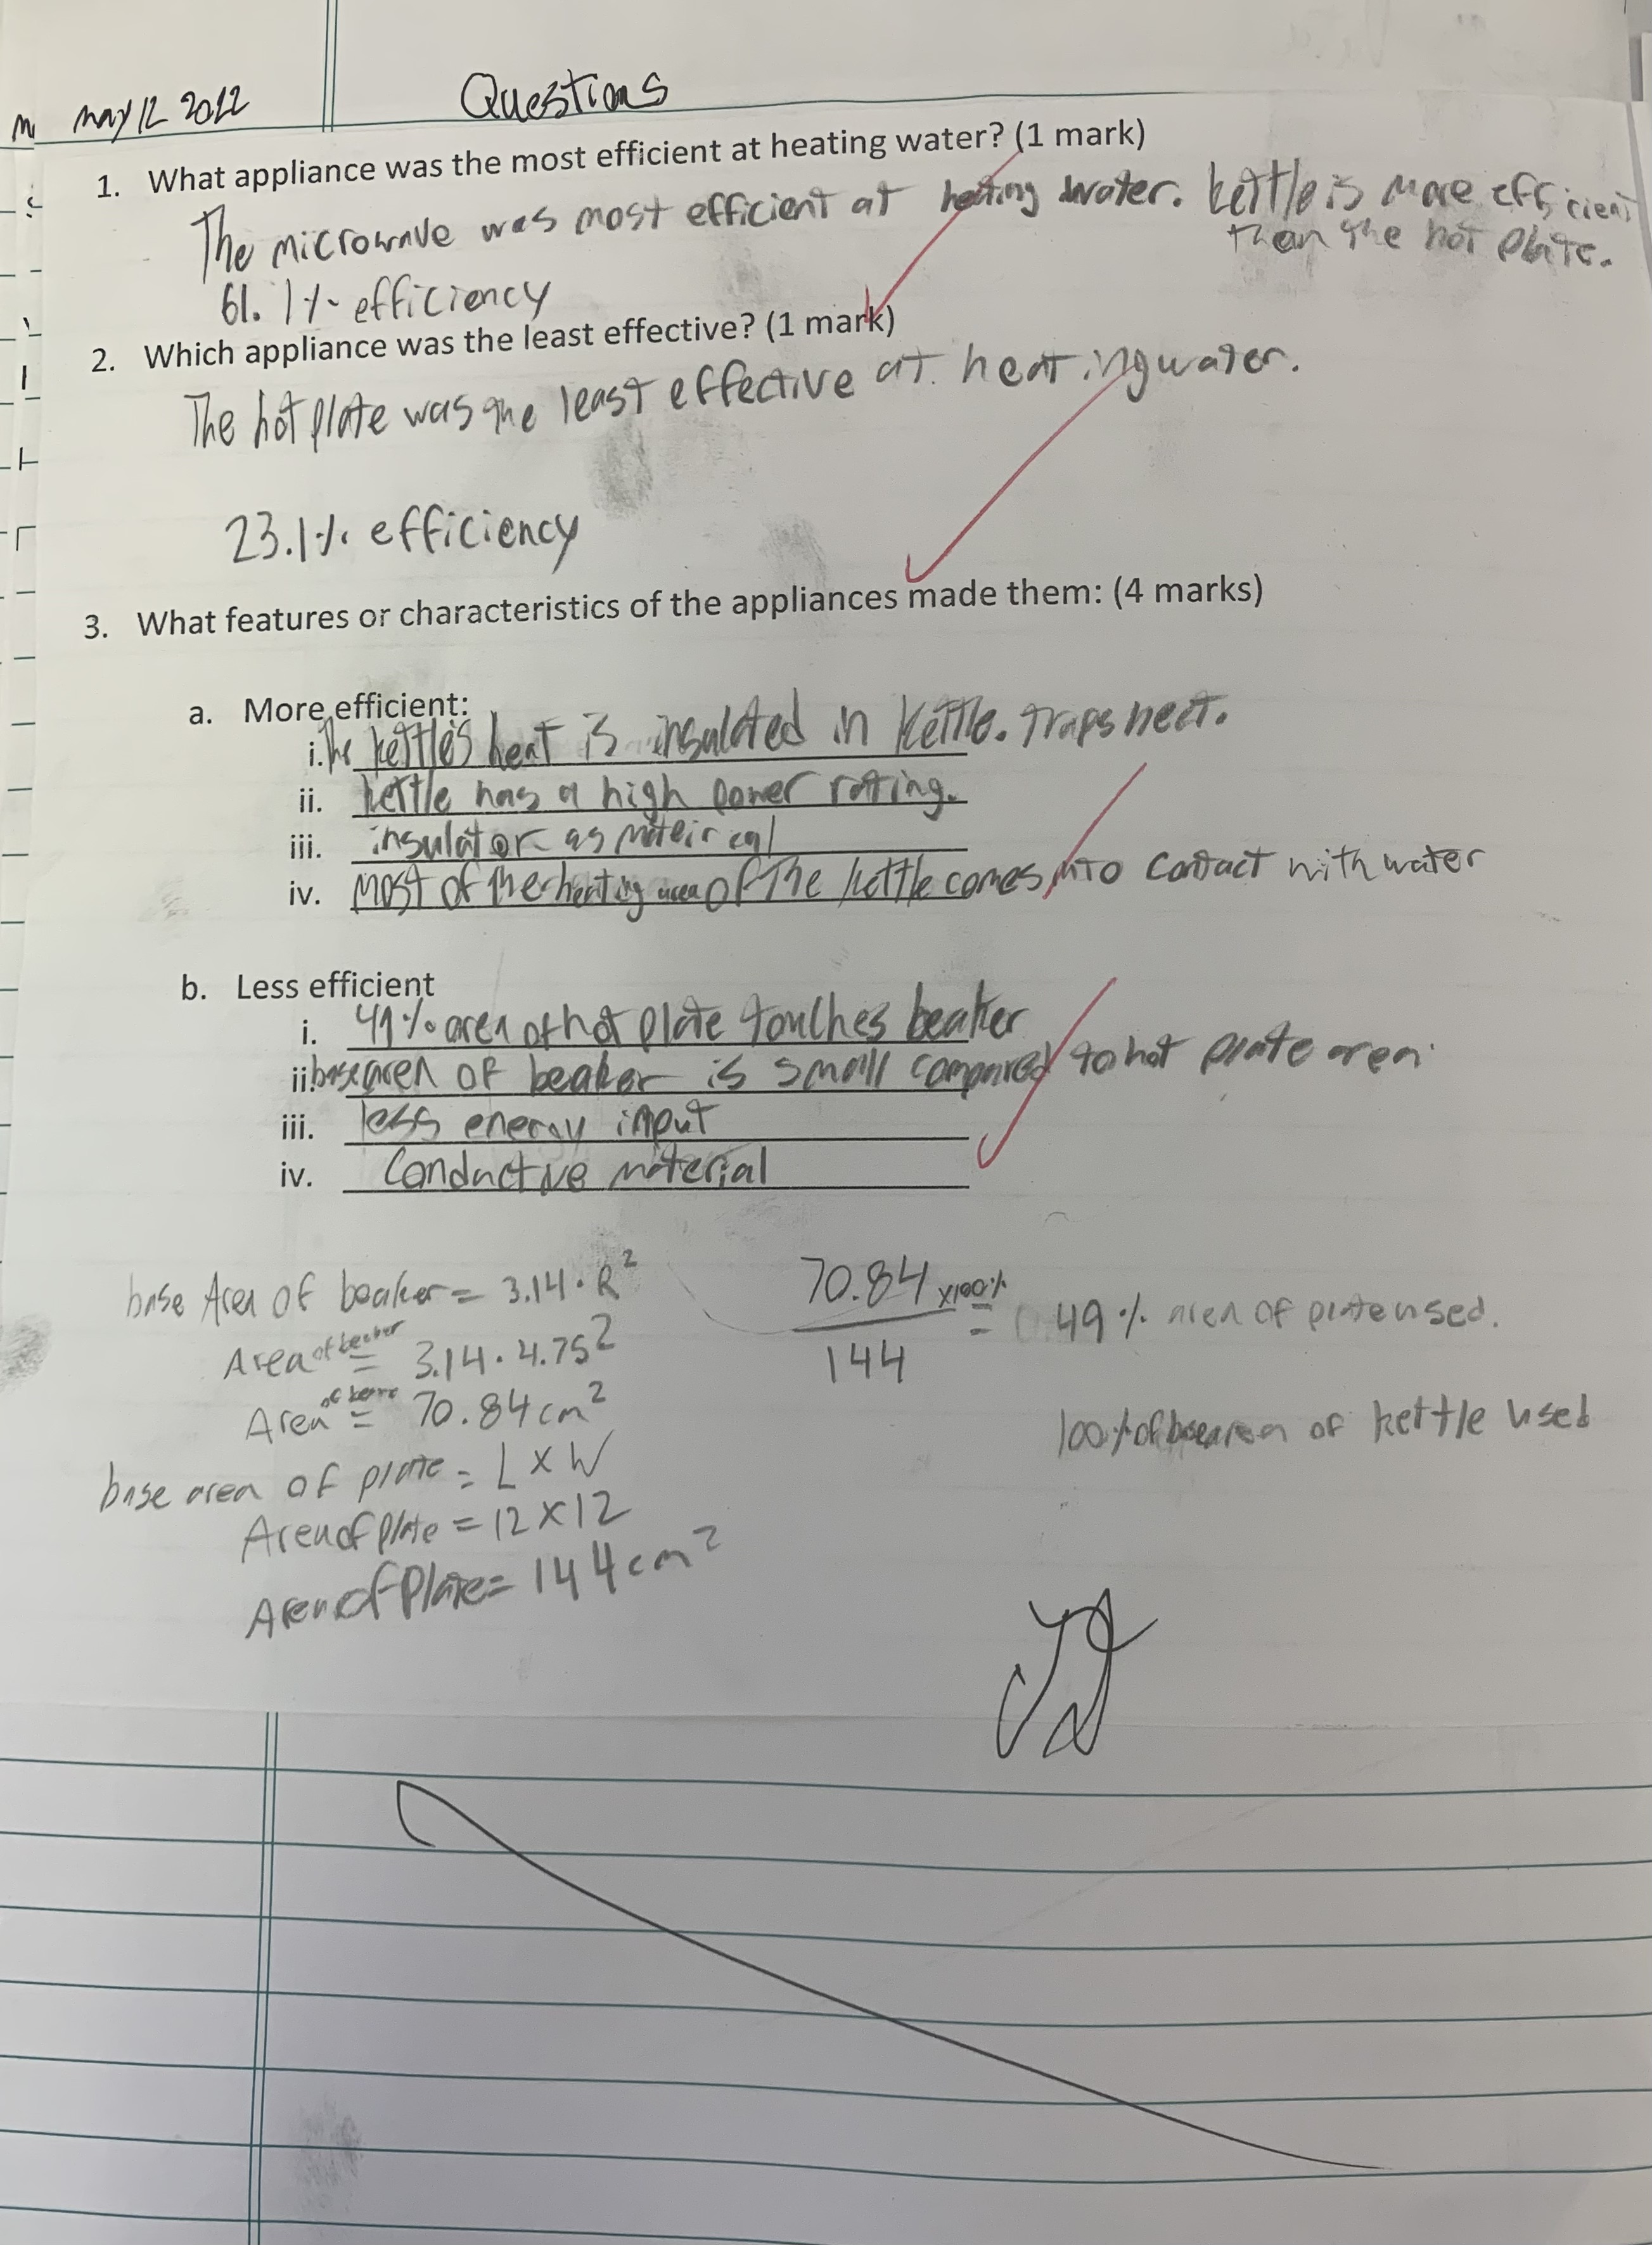 may 12 2022
Questions
1. What appliance was the most efficient at heating water? (1 mark)
The microwave was most efficient at heating water. kettle is more efficient
than the hot plate.
61.1% efficiency
2. Which appliance was the least effective? (1 mark)
The hot plate was the least effective at heating water.
23.1% efficiency
3. What features or characteristics of the appliances made them: (4 marks)
a. More efficient:
i. The kettle's heat is insulated in kettle. traps heat.
ii. kettle has a high power rating.
iii. insulator as mateirial
iv. most of the heating area of the kettle comes into contact with water
b. Less efficient
i. 49% area of hot plate touches beaker
ii. base area of beaker is small compared to hot plate area.
iii. less energy input
iv. Conductive material
base Area of beaker = 3.14 · R²
Area of beaker = 3.14 · 4.75²
Area = 70.84 cm²
base area of plate = L x W
Area of plate = 12 x 12
Area of Plate = 144 cm²
70.84 x100% =
144
49 % area of plate used.
100% of area of kettle used